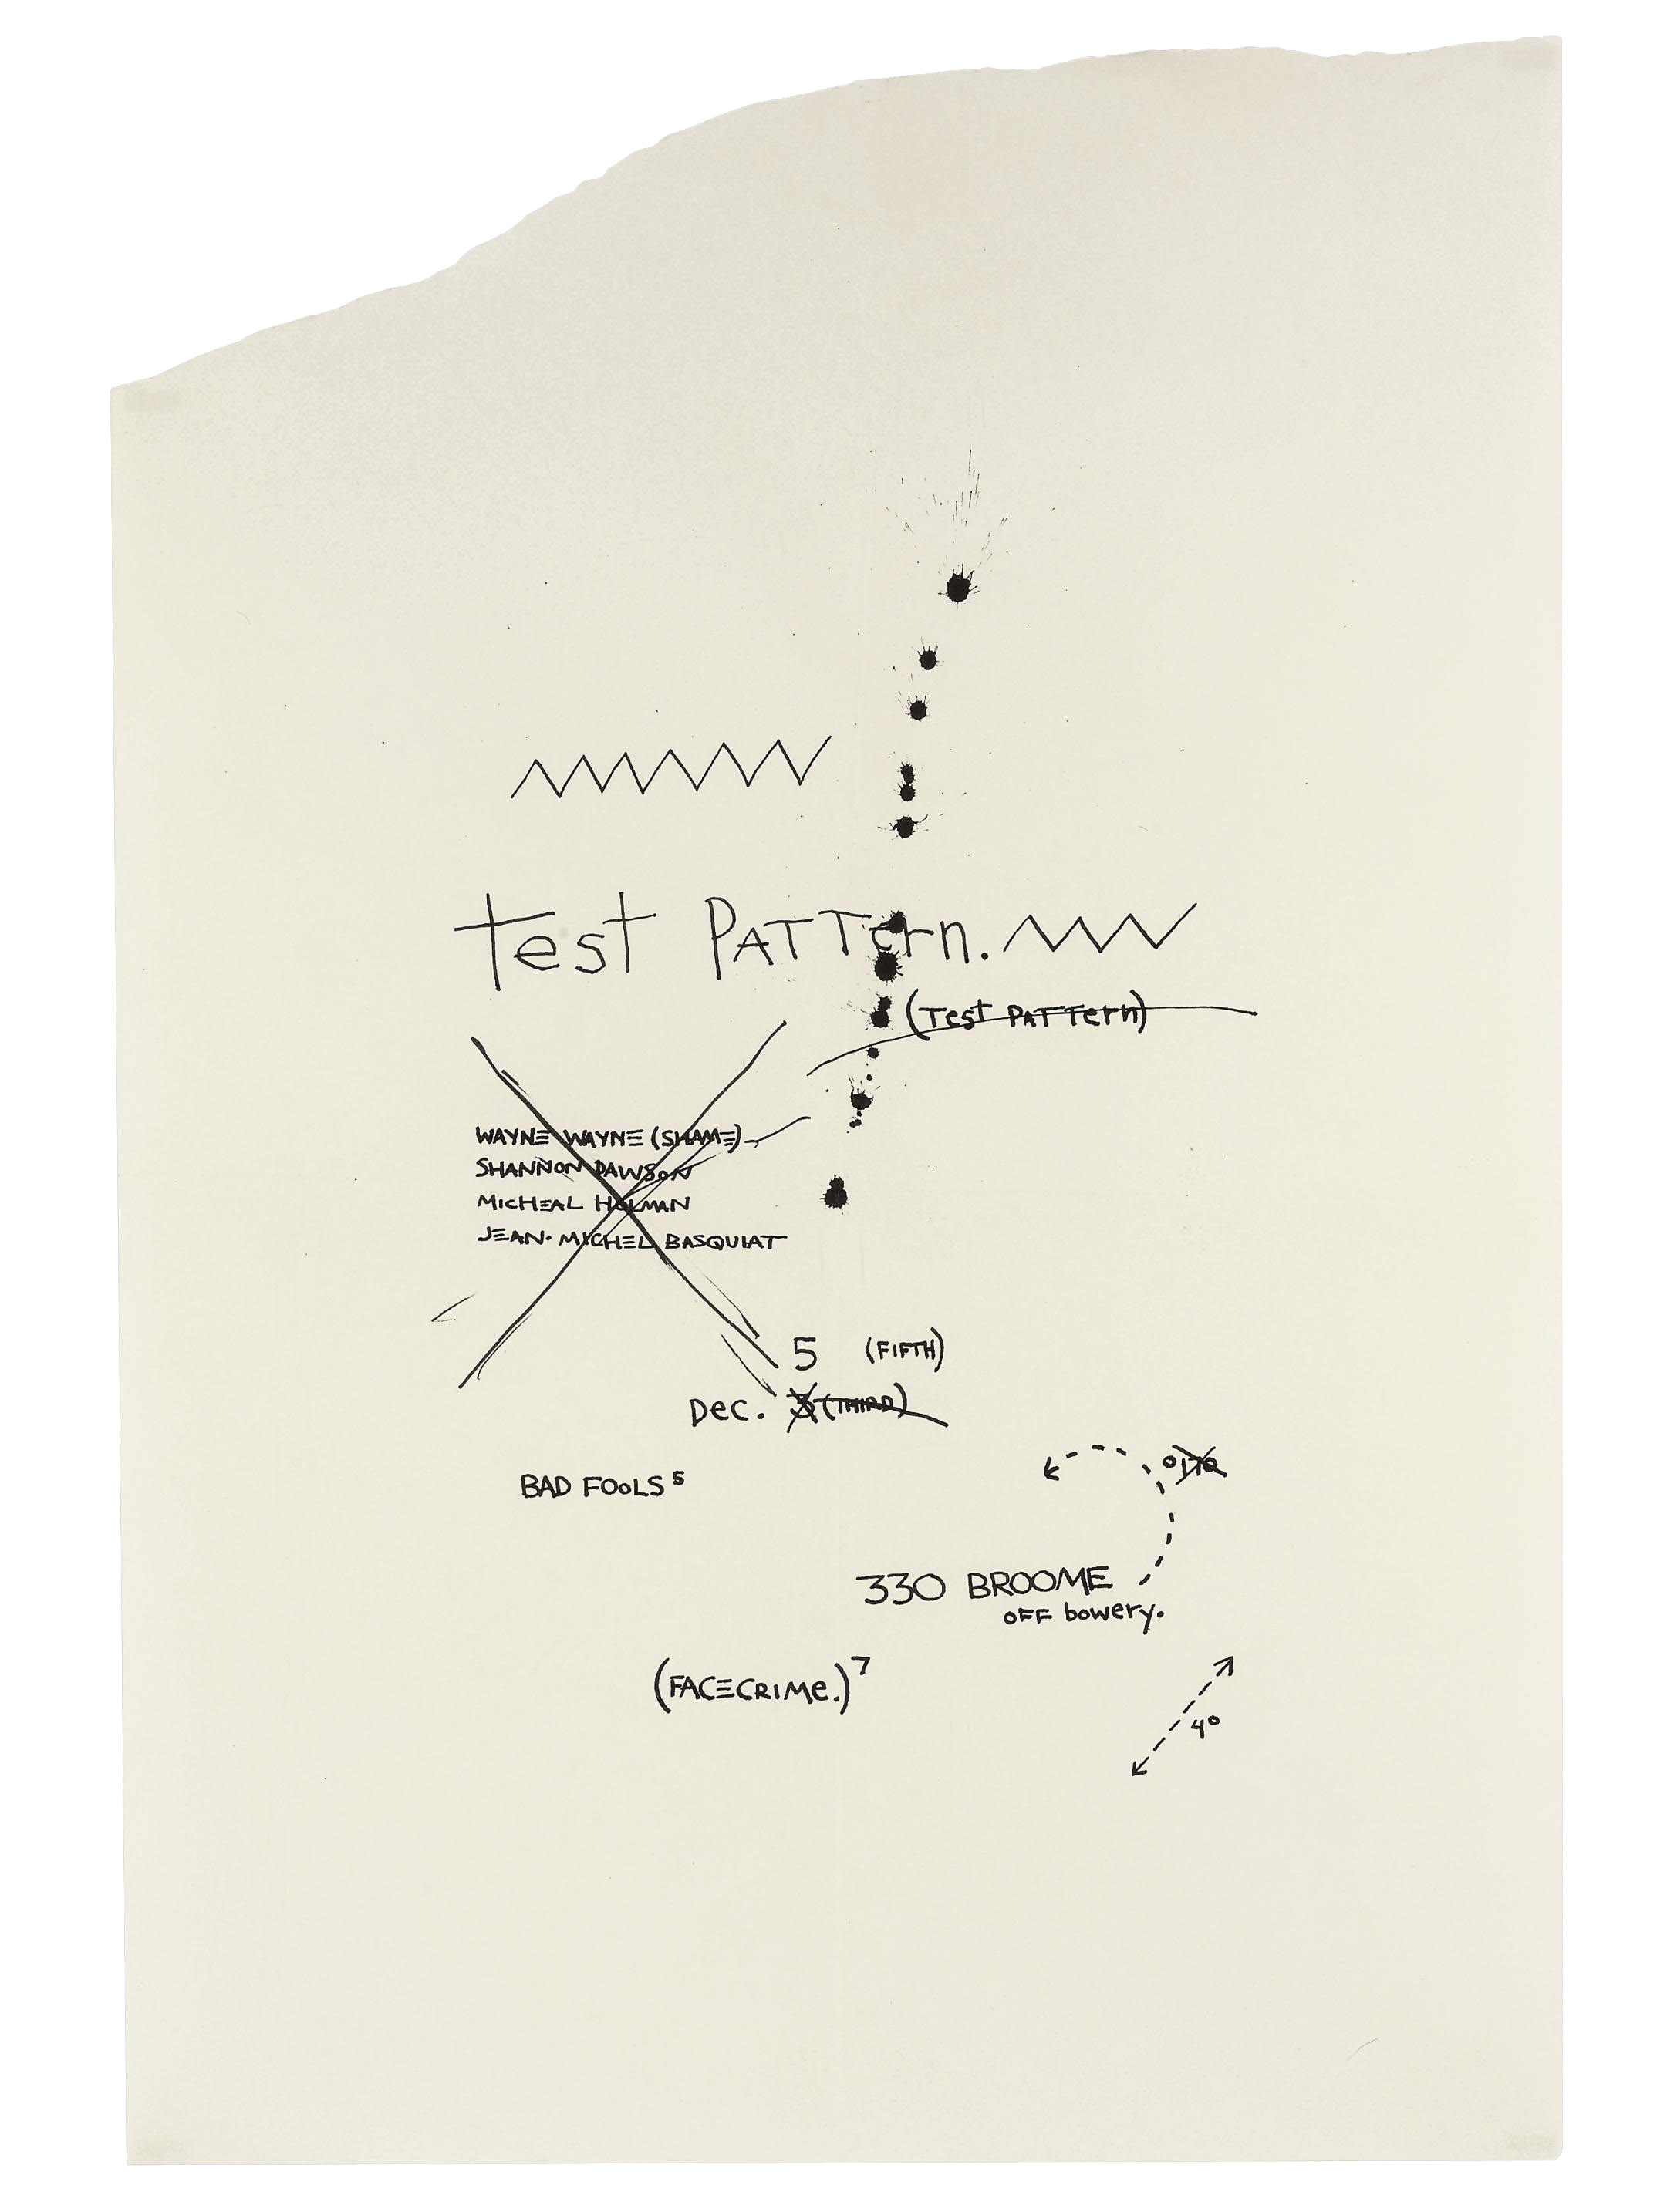 test PATTern.
(Test PATTern)
WAYNE WAYNE (SHAME)
SHANNON DAWSON
MICHEAL HOLMAN
JEAN-MICHEL BASQUIAT
5 (FIFTH)
Dec. 3 (THIRD)
BAD FOOLS 5
330 BROOME
OFF bowery.
(FACECRIMe.) 7
4°